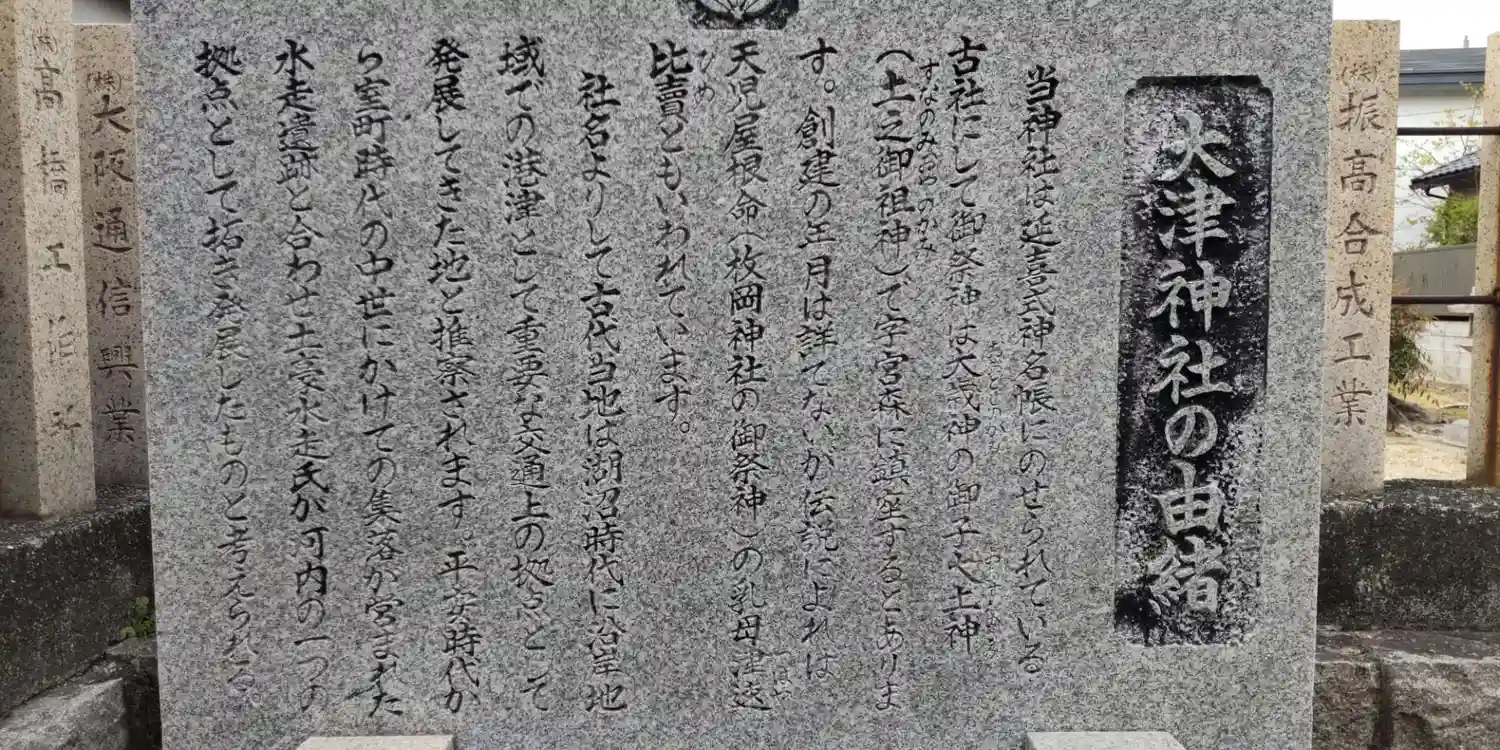 大津神社の由緒
当神社は延喜式神名帳にのせられている
古社にして御祭神は大歳神の御子大土神
すなのみおやのかみ
(土之御祖神)で字宮森に鎮座するとありま
す。創建の年月は詳でないが伝説によれば
天児屋根命(枚岡神社の御祭神)の乳母津速
はや
比賣ともいわれています。
ひめ
社名よりして古代当地は湖沼時代に沿岸地
域での港津として重要な交通上の拠点とし
発展してきた地と推察されます。平安時代か
ら室町時代の中世にかけての集落が営まれた
水走遺跡と合わせ土豪水走氏が河内の一つの
拠点として拓き発展したものと考えられる。
(株)振高合成工業
(株)大阪通信興業
(株)高橋工